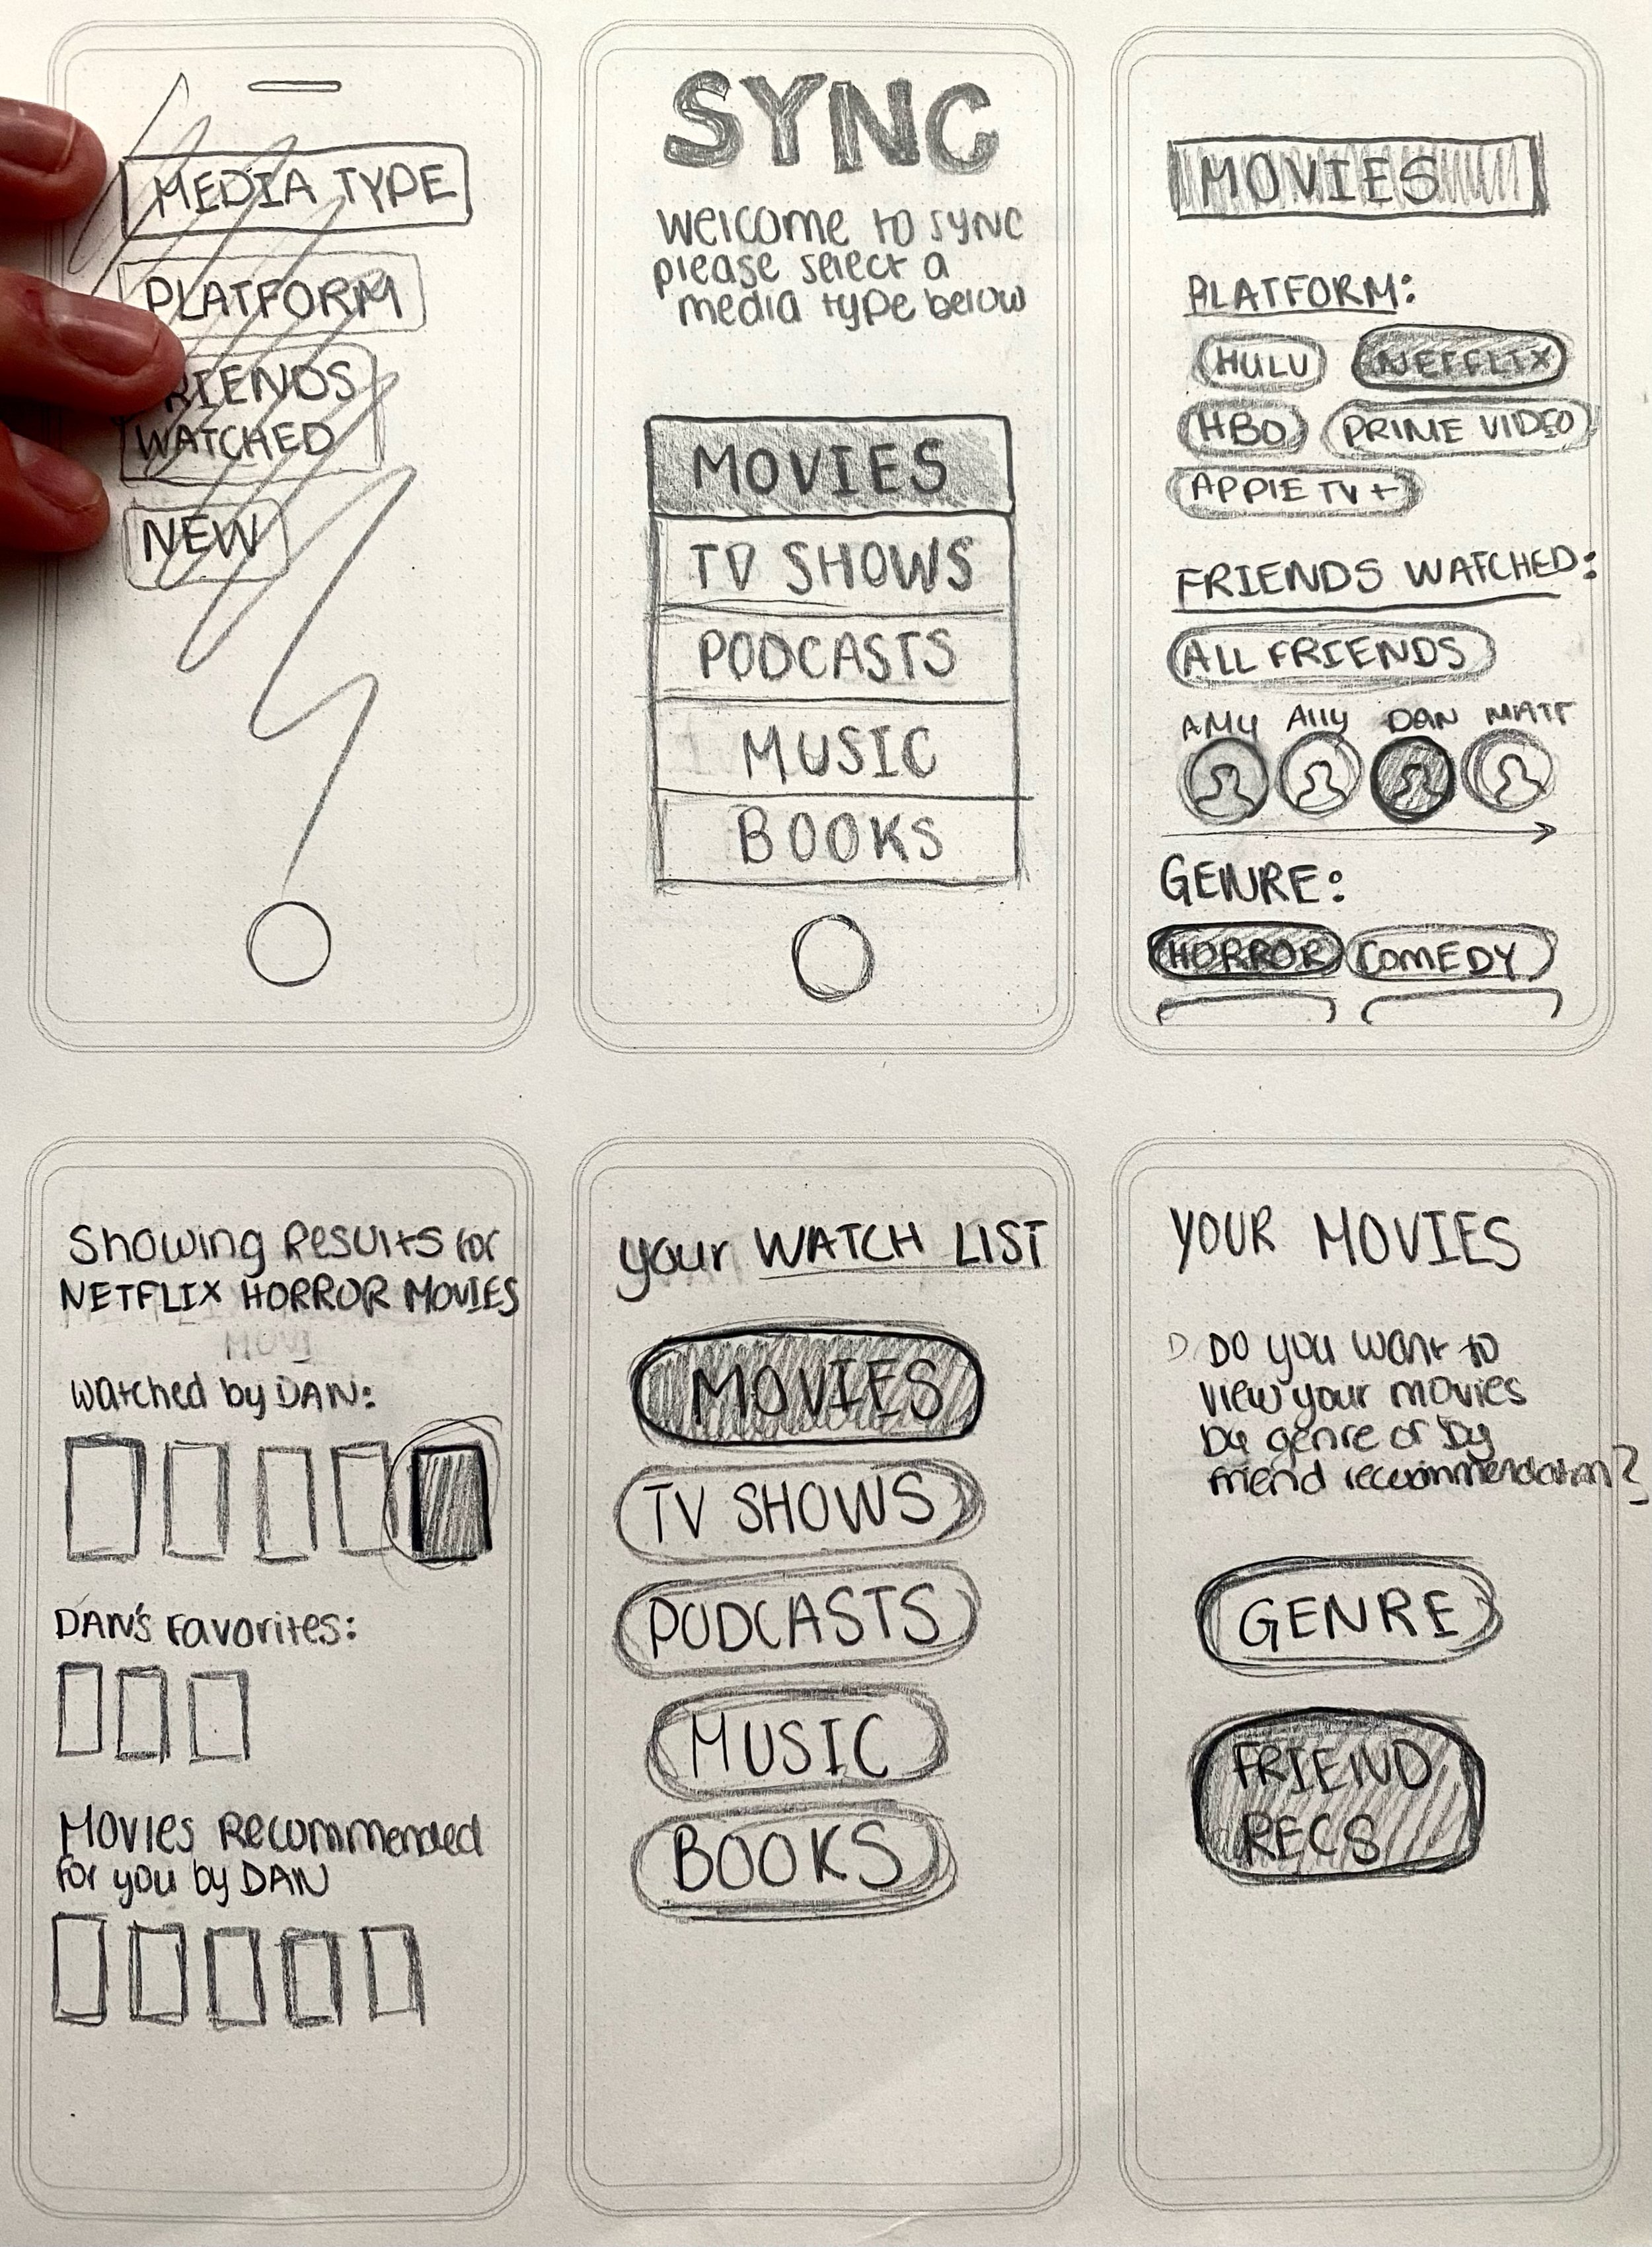 MEDIA TYPE
PLATFORM
RIENDS
WATCHED
NEW
SYNC
Welcome to SYNC
please select a
media type below
MOVIES
TV SHOWS
PODCASTS
MUSIC
BOOKS
MOVIES
PLATFORM:
HULU NEFFLIX
HBO PRIME VIDEO
APPLE TV+
FRIENDS WATCHED:
ALL FRIENDS
AMY Ally DAN MATT
GENRE:
HORROR COMEDY
Showing Results for
NETFLIX HORROR MOVIES
MOVI
Watched by DAN:
DAN'S Favorites:
Movies Recommended
for you by DAN
your WATCH LIST
MOVIES
TV SHOWS
PODCASTS
MUSIC
BOOKS
YOUR MOVIES
D Do you want to
view your movies
by genre or by
friend recommendation?
GENRE
FRIEND
RECS